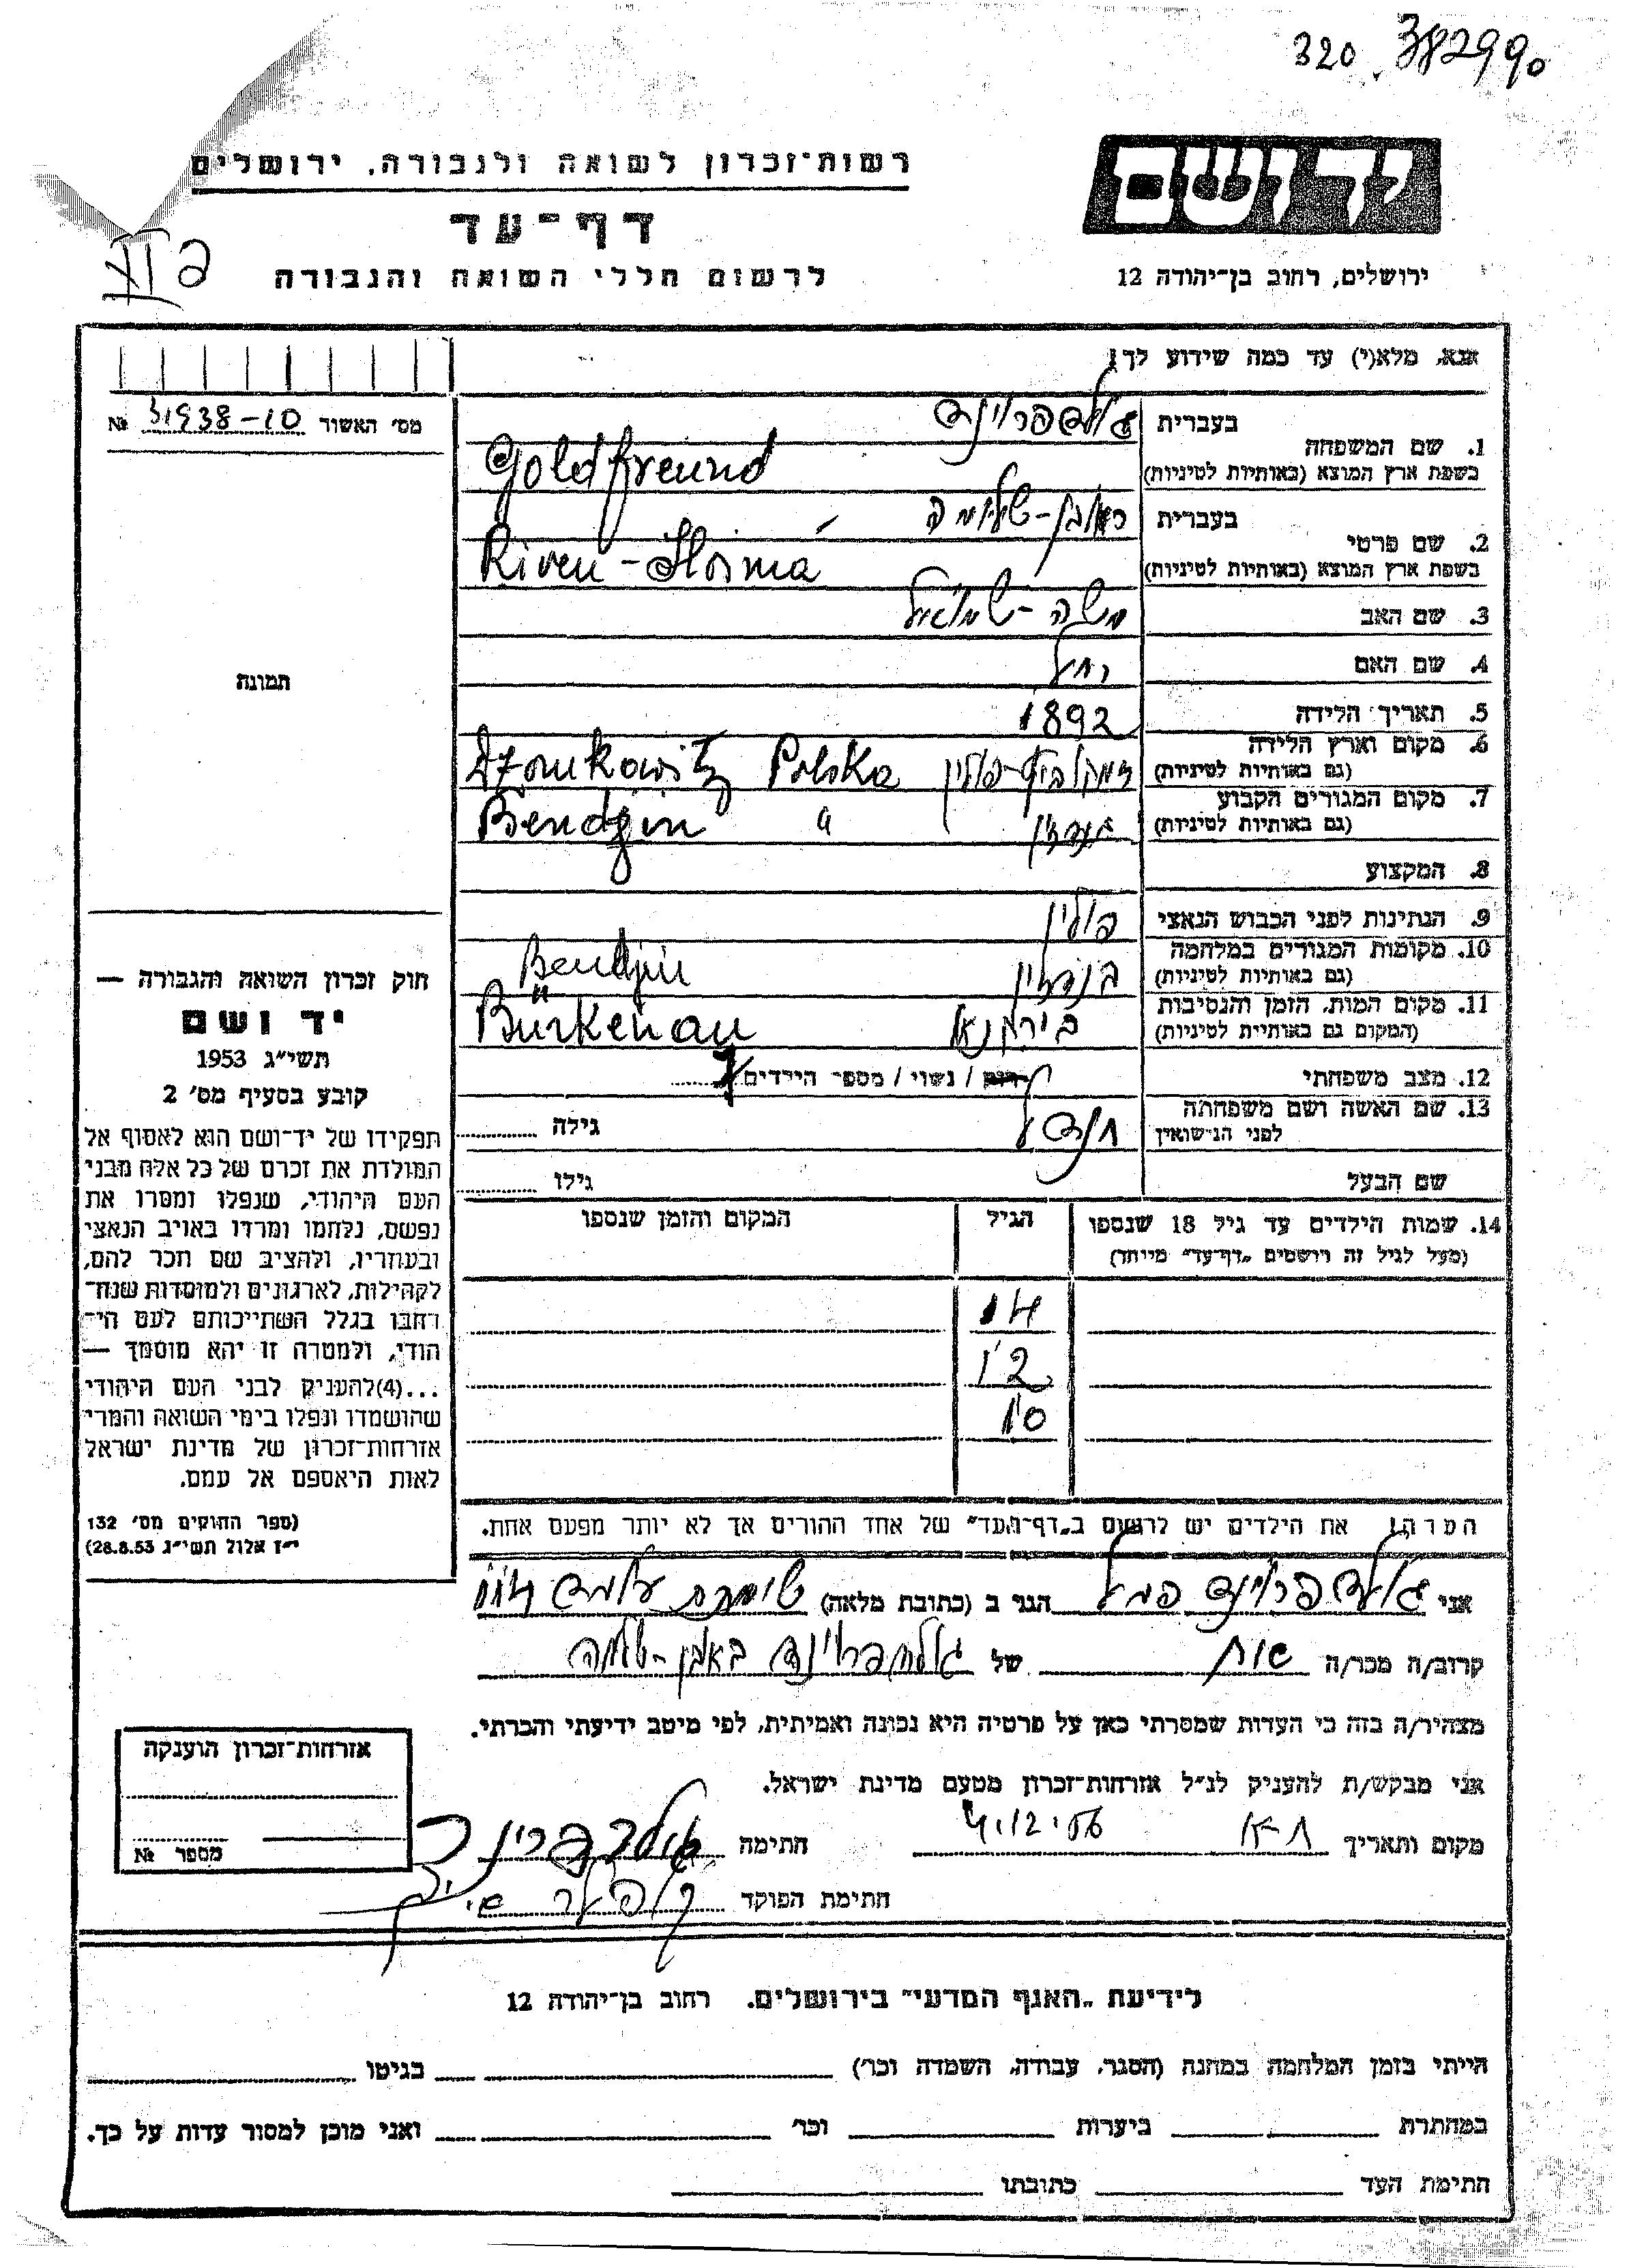 320 382990
יד ושם
רשות־זכרון לשואה ולגבורה, ירושלים
דף־עד
לרשום חללי השואה והגבורה
ירושלים, רחוב בן־יהודה 12
אנא, מלא(י) עד כמה שידוע לך!
מס׳ האשור 31938-10 №
1. שם המשפחה
בעברית גולדפרוינד
בשפת ארץ המוצא (באותיות לטיניות) Goldfreund
2. שם פרטי
בעברית ראובן-שלומה
בשפת ארץ המוצא (באותיות לטיניות) Riven-Sloima
3. שם האב משה-שמואל
4. שם האם רחל
5. תאריך הלידה 1892
6. מקום וארץ הלידה
(גם באותיות לטיניות) פולין Polska
7. מקום המגורים הקבוע
(גם באותיות לטיניות) בנדין Bendzin "
8. המקצוע
9. הנתינות לפני הכבוש הנאצי פולין
10. מקומות המגורים במלחמה
(גם באותיות לטיניות) בנדזין Bendzin
11. מקום המות, הזמן והנסיבות
(המקום גם באותיות לטיניות) בירקנאו Bürkenau
12. מצב משפחתי
רווק / נשוי / מספר הילדים 7
13. שם האשה ושם משפחתה
לפני הנישואין גילה
שם הבעל גילו
14. שמות הילדים עד גיל 18 שנספו
(מעל לגיל זה רושמים „דף־עד” מיוחד)
הגיל
המקום והזמן שנספו
14
12
10
הערה! את הילדים יש לרשום ב„דף־העד” של אחד ההורים אך לא יותר מפעם אחת.
אני גולדפרוינד הגר ב (כתובת מלאה)
קרוב/ה מכר/ה של גולדפרוינד ראובן-שלמה
מצהיר/ה בזה כי העדות שמסרתי כאן על פרטיה היא נכונה ואמיתית, לפי מיטב ידיעתי והכרתי.
אני מבקש/ת להעניק לנ״ל אזרחות־זכרון מטעם מדינת ישראל.
מקום ותאריך ת״א 4.12.56 חתימה גולדפרוינד
חתימת הפוקד
תמונה
חוק זכרון השואה והגבורה —
יד ושם
תשי״ג 1953
קובע בסעיף מס׳ 2
תפקידו של יד־ושם הוא לאסוף אל
המולדת את זכרם של כל אלה מבני
העם היהודי, שנפלו ומסרו את
נפשם, נלחמו ומרדו באויב הנאצי
ובעוזריו, ולהציב שם וזכר להם,
לקהילות, לארגונים ולמוסדות שנח־
רבו בגלל השתייכותם לעם הי־
הודי, ולמטרה זו יהא מוסמך —
...(4) להעניק לבני העם היהודי
שהושמדו ונפלו בימי השואה והמרי
אזרחות־זכרון של מדינת ישראל
לאות היאספם אל עמם.
(ספר החוקים מס׳ 132
י״ז אלול תשי״ג 28.8.53)
אזרחות־זכרון הוענקה
מספר №
לידיעת „האגף המדעי” בירושלים. רחוב בן־יהודה 12
הייתי בזמן המלחמה במחנה (הסגר, עבודה, השמדה וכר׳) בגיטו
במחתרת ביערות וכר׳ ואני מוכן למסור עדות על כך.
חתימת העד כתובתו